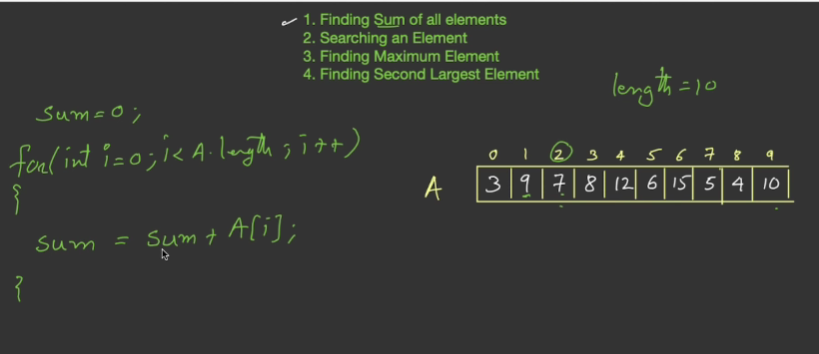 1. Finding Sum of all elements
2. Searching an Element
3. Finding Maximum Element
4. Finding Second Largest Element
length = 10
sum = 0;
for(int i=0; i< A.length; i++)
{
sum = sum + A[i];
}
0 1 2 3 4 5 6 7 8 9
A 3 9 7 8 12 6 15 5 4 10